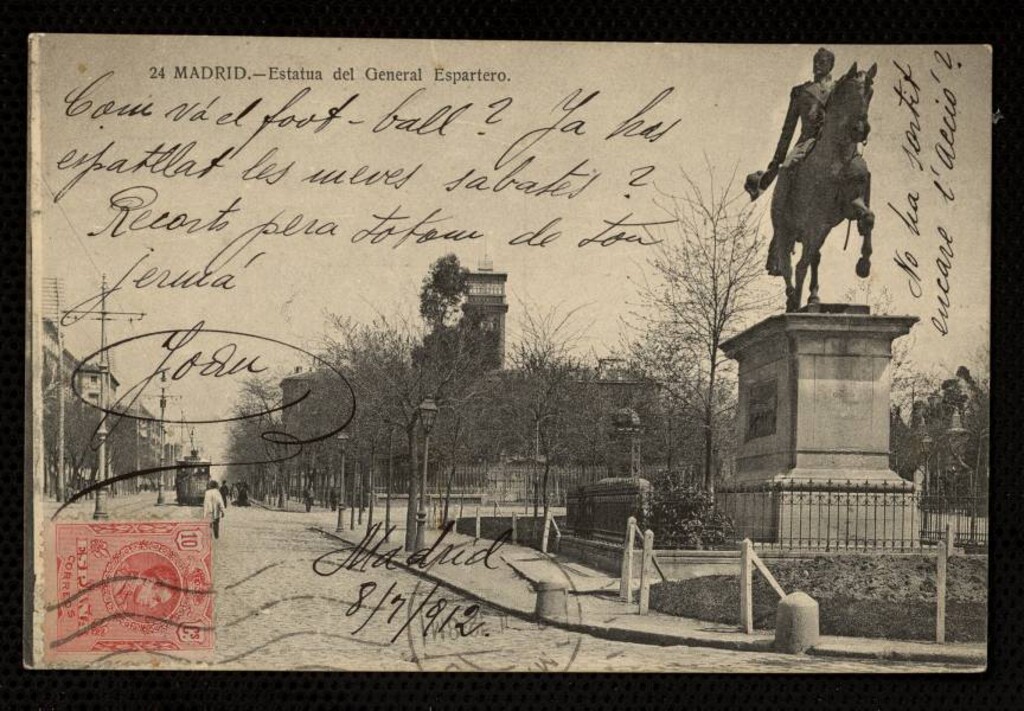 24 MADRID.—Estatua del General Espartero.
Com vá el foot-ball? Ja has
espatllat les meves sabates?
Recorts pera totom de ton
jermá
Joan
Madrid
8/7/912.
No ha sortit
encare l'acció?
10 Cts
CORREOS